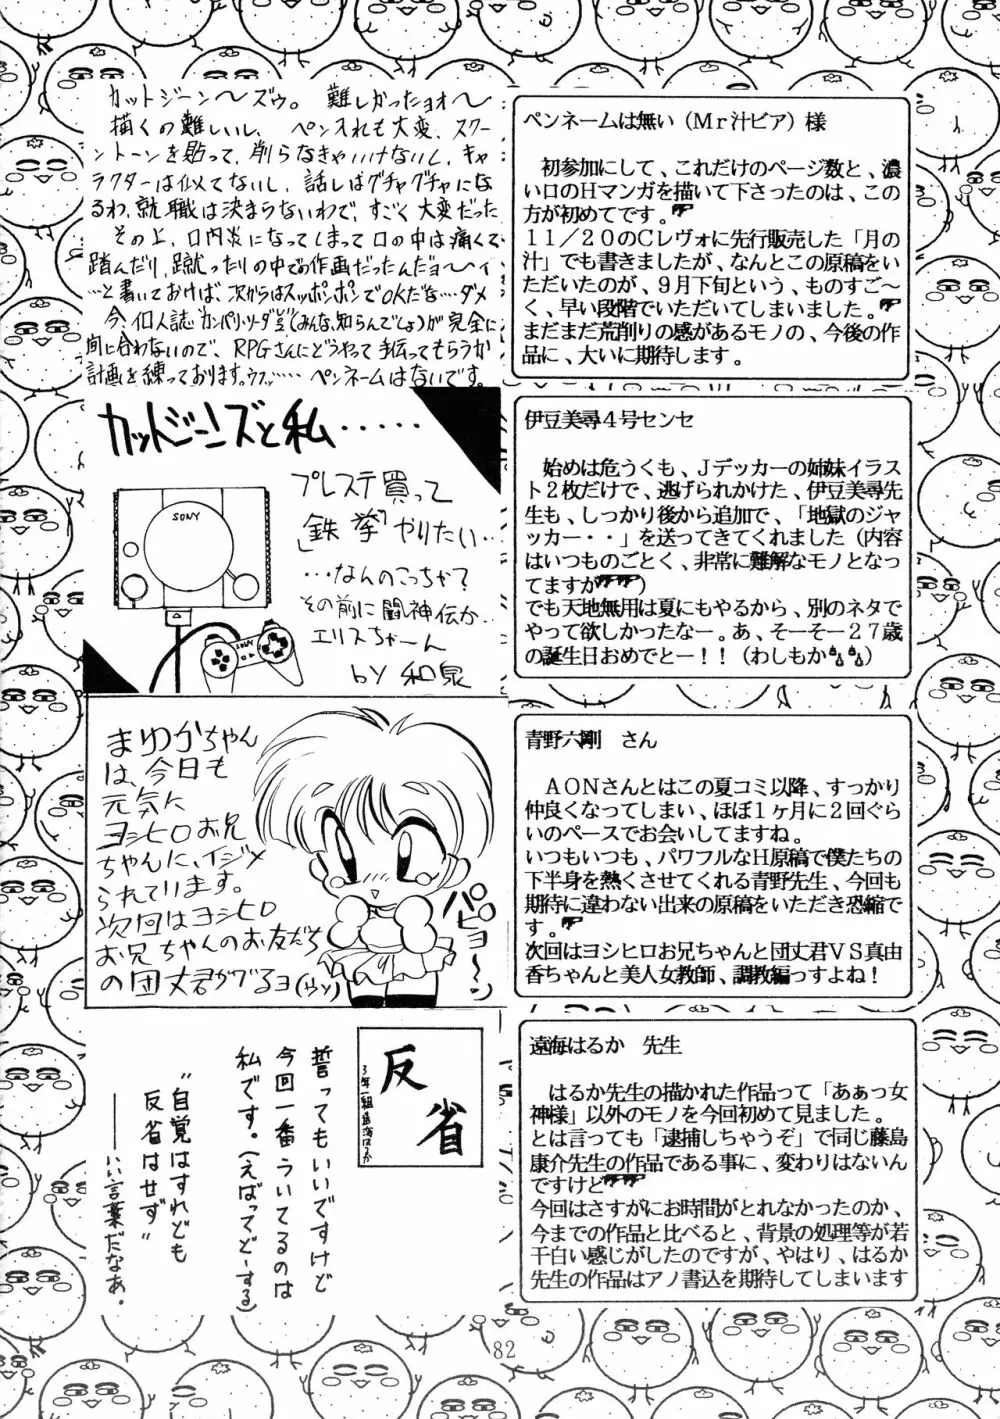 カットジーン〜ズゥ。難しかったョォ〜
描くの難しいし、ペン入れも大変、スクリ
ーントーンを貼って、削らなきゃいけないし、キャ
ラクターは似てないし、話しはグチャグチャにな
るわ、就職は決まらないわで、すごく大変だった
その上、口内炎になってしまって口の中は痛くて
踏んだり、蹴ったりの中での作画だったんだョ〜ィ
…と書いておけば、次からはスッポンポンでOKだな…ダメ
今、個人誌"カンパリ・ソーダ堂"(みんな、知らんでしょ)が完全に
間に合わないので、RPGさんにどうやって手伝ってもらうか
計画を練っております。ウフッ…… ペンネームはないです。
ペンネームは無い（Mr汁ビア）様
初参加にして、これだけのページ数と、濃
い口のHマンガを描いて下さったのは、この
方が初めてです。
11／20のCレヴォに先行販売した「月の
汁」でも書きましたが、なんとこの原稿をい
ただいたのが、9月下旬という、ものすご～
く、早い段階でいただいてしまいました。
まだまだ荒削りの感があるモノの、今後の作
品に、大いに期待します。
カットジーンズと私‥‥‥
SONY
SONY
プレステ買って
「鉄拳」やりたい…
…なんのこっちゃ？
その前に闘神伝か
エリスちゃーん
by 和泉
伊豆美尋4号センセ
始めは危うくも、Jデッカーの姉妹イラス
ト2枚だけで、逃げられかけた、伊豆美尋先
生も、しっかり後から追加で、「地獄のジャ
ッカー・・」を送ってきてくれました（内容
はいつものごとく、非常に難解なモノとなっ
てますが）
でも天地無用は夏にもやるから、別のネタで
やって欲しかったなー。あ、そーそー27歳
の誕生日おめでとー！！（わしもか）
まゆかちゃん
は、今日も
元気に
ヨシヒロお兄
ちゃんに、イジメ
られています。
次回はヨシヒロ
お兄ちゃんのお友だち
の団丈君がでるョ(ウソ)
パピョ〜ン
青野六剛　さん
AONさんとはこの夏コミ以降、すっかり
仲良くなってしまい、ほぼ1ヶ月に2回ぐら
いのペースでお会いしてますね。
いつもいつも、パワフルなH原稿で僕たちの
下半身を熱くさせてくれる青野先生、今回も
期待に違わない出来の原稿をいただき恐縮で
す。
次回はヨシヒロお兄ちゃんと団丈君VS真由
香ちゃんと美人女教師、調教編っすよね！
反省
3年一組遠海はるか
誓ってもいいですけど
今回一番ういてるのは
私です。（えばってどーする）
"自覚はすれども
反省はせず"
――いい言葉だなあ．
遠海はるか　先生
はるか先生の描かれた作品って「あぁっ女
神様」以外のモノを今回初めて見ました。
とは言っても「逮捕しちゃうぞ」で同じ藤島
康介先生の作品である事に、変わりはないん
ですけど
今回はさすがにお時間がとれなかったのか、
今までの作品と比べると、背景の処理等が若
干白い感じがしたのですが、やはり、はるか
先生の作品はアノ書込を期待してしまいます
82